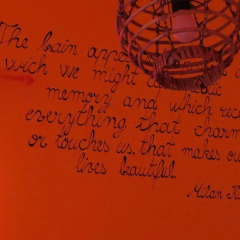 The bain appo
wich we might
memory and which rec
everything that charm
or touches us, that makes ou
lives beautiful.
Milan K